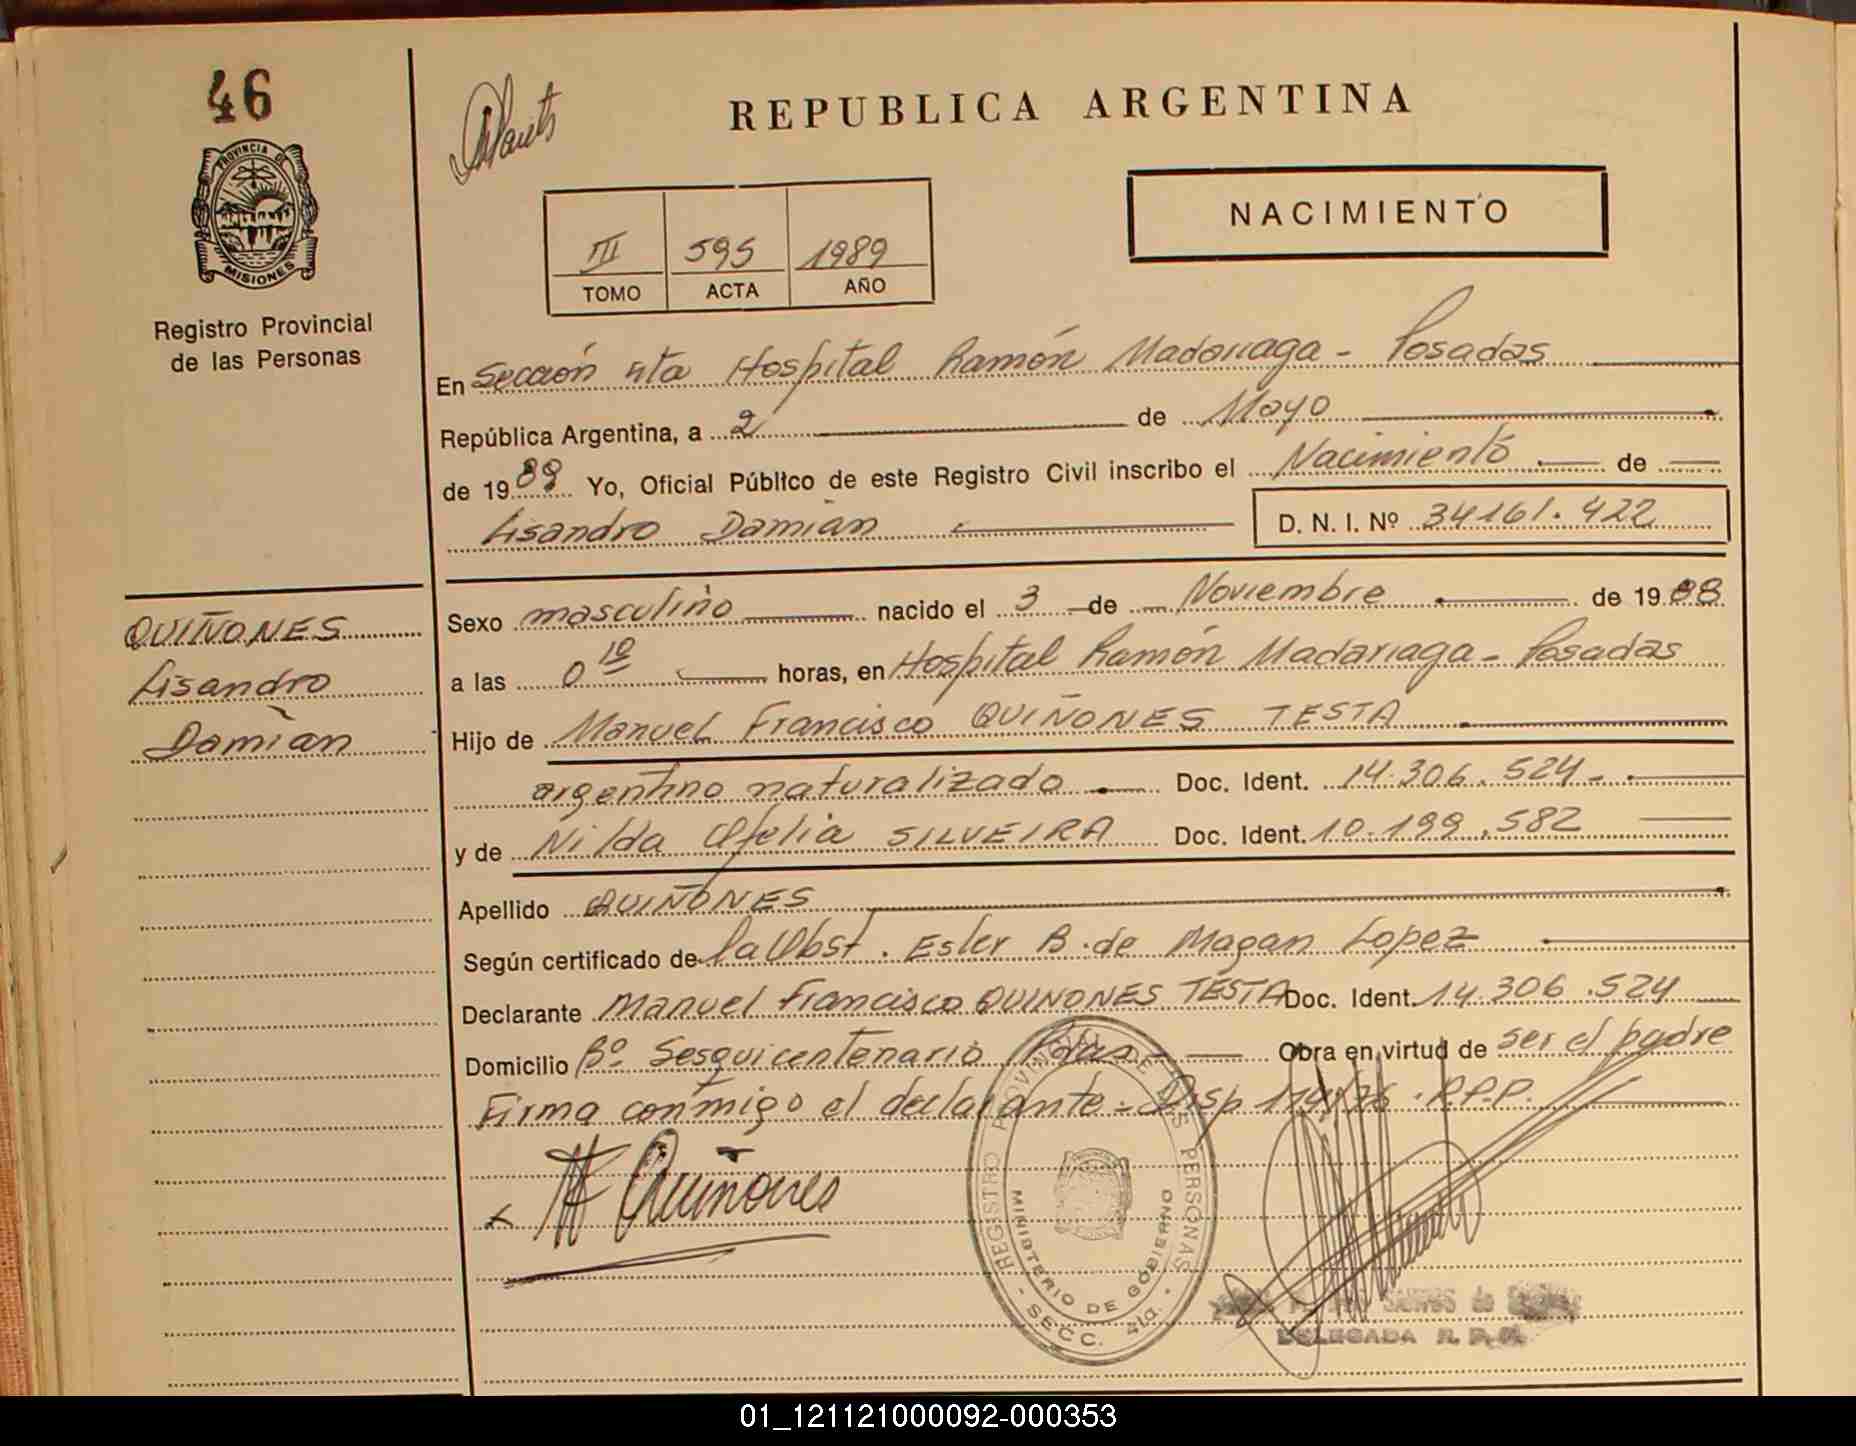 46
PROVINCIA DE
MISIONES
Registro Provincial
de las Personas
REPUBLICA ARGENTINA
NACIMIENTO
III 595 1989
TOMO ACTA AÑO
En Sección 4ta Hospital Ramón Madariaga - Posadas
República Argentina, a 2 de Mayo
de 1989 Yo, Oficial Público de este Registro Civil inscribo el Nacimiento de
Lisandro Damián D. N. I. Nº 34161.422
QUIÑONES
Lisandro
Damián
Sexo masculino nacido el 3 de Noviembre de 1988
a las 0 10 horas, en Hospital Ramón Madariaga - Posadas
Hijo de Manuel Francisco QUIÑONES TESTA
argentino naturalizado Doc. Ident. 14.306.524
y de Nilda Ofelia SILVEIRA Doc. Ident. 10.199.582
Apellido QUIÑONES
Según certificado de la Obst. Ester B. de Magan Lopez
Declarante Manuel Francisco QUIÑONES TESTA Doc. Ident. 14.306.524
Domicilio Bº Sesquicentenario Pdas - Obra en virtud de ser el padre
Firma conmigo el declarante - Disp 179/76 . R.P.P.
x Quiñones
REGISTRO PROVINCIAL DE LAS PERSONAS
MINISTERIO DE GOBIERNO
- SECC. 4ta. -
SANTOS de
DELEGADA R. P. P.
01_121121000092-000353